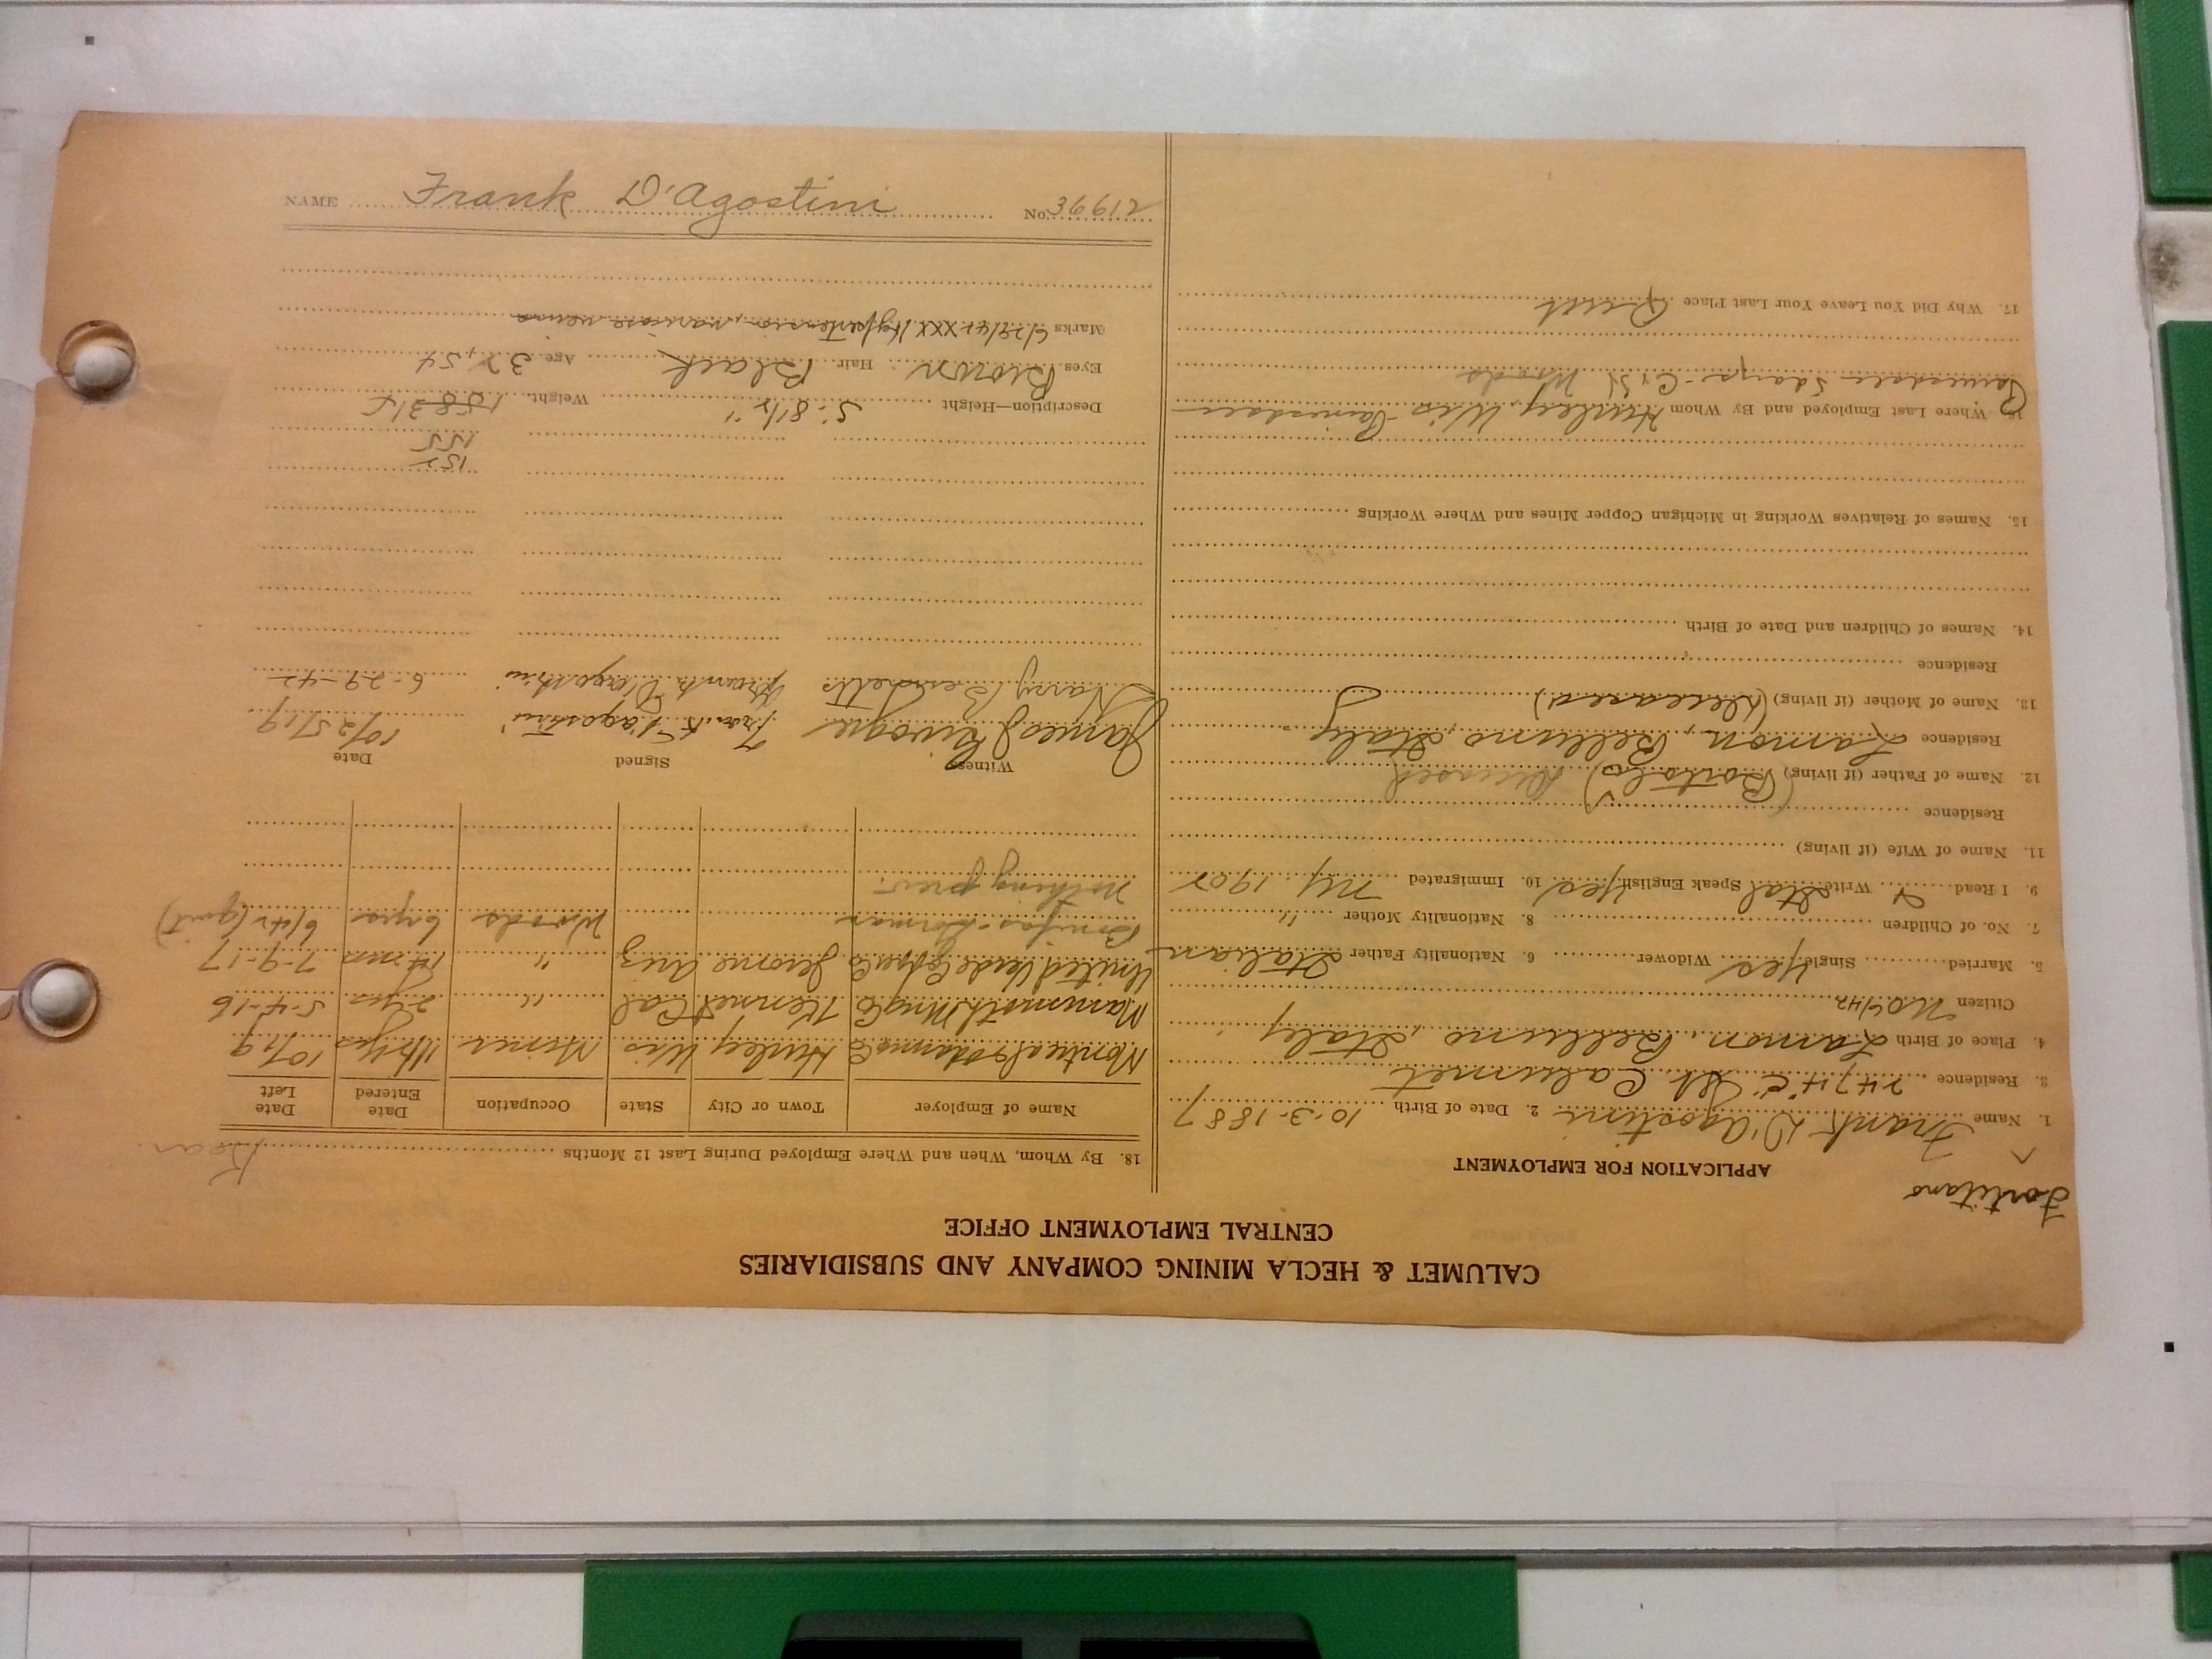 CALUMET & HECLA MINING COMPANY AND SUBSIDIARIES
CENTRAL EMPLOYMENT OFFICE
Fortitano
APPLICATION FOR EMPLOYMENT
1. Name Frank D'Agostini 2. Date of Birth 10-3-1887
3. Residence 2474 "C" St. Calumet
4. Place of Birth Lamon, Belluno, Italy
Citizen No
5. Married Single Yes Widower 6. Nationality Father Italian
7. No. of Children 8. Nationality Mother "
9. I Read Write Ital Speak English Yes 10. Immigrated NY 1902
11. Name of Wife (if living)
Residence
12. Name of Father (if living) (Bortolo) Deceased
Residence Lamon, Belluno, Italy
13. Name of Mother (if living) (Deceased)
Residence
14. Names of Children and Date of Birth
15. Names of Relatives Working in Michigan Copper Mines and Where Working
16. Where Last Employed and By Whom Hurley, Wis
Woods
17. Why Did You Leave Your Last Place Quit
18. By Whom, When and Where Employed During Last 12 Months
Name of Employer Town or City State Occupation Date Entered Date Left
Montreal Hurley Wis Miner 10/19
Mammoth Mng Co Kennet Cal " 2 yrs 5-4-16
United Verde Copper Co Jerome Ariz " 14 mos 7-9-17
Bonifas-Gorman Woods 6 yrs 6/42 (quit)
Nothing prev.
Witness Signed Date
James J Frank D'Agostini 10/25/19
Harry Benedetti Frank D'Agostini 6-29-42
152
155
Description—Height 5' 8 1/2" Weight
Eyes Brown Hair Black Age 32, 54
Marks 6/29/42 XXX Hypertension, varicose veins
NAME Frank D'Agostini No. 36612